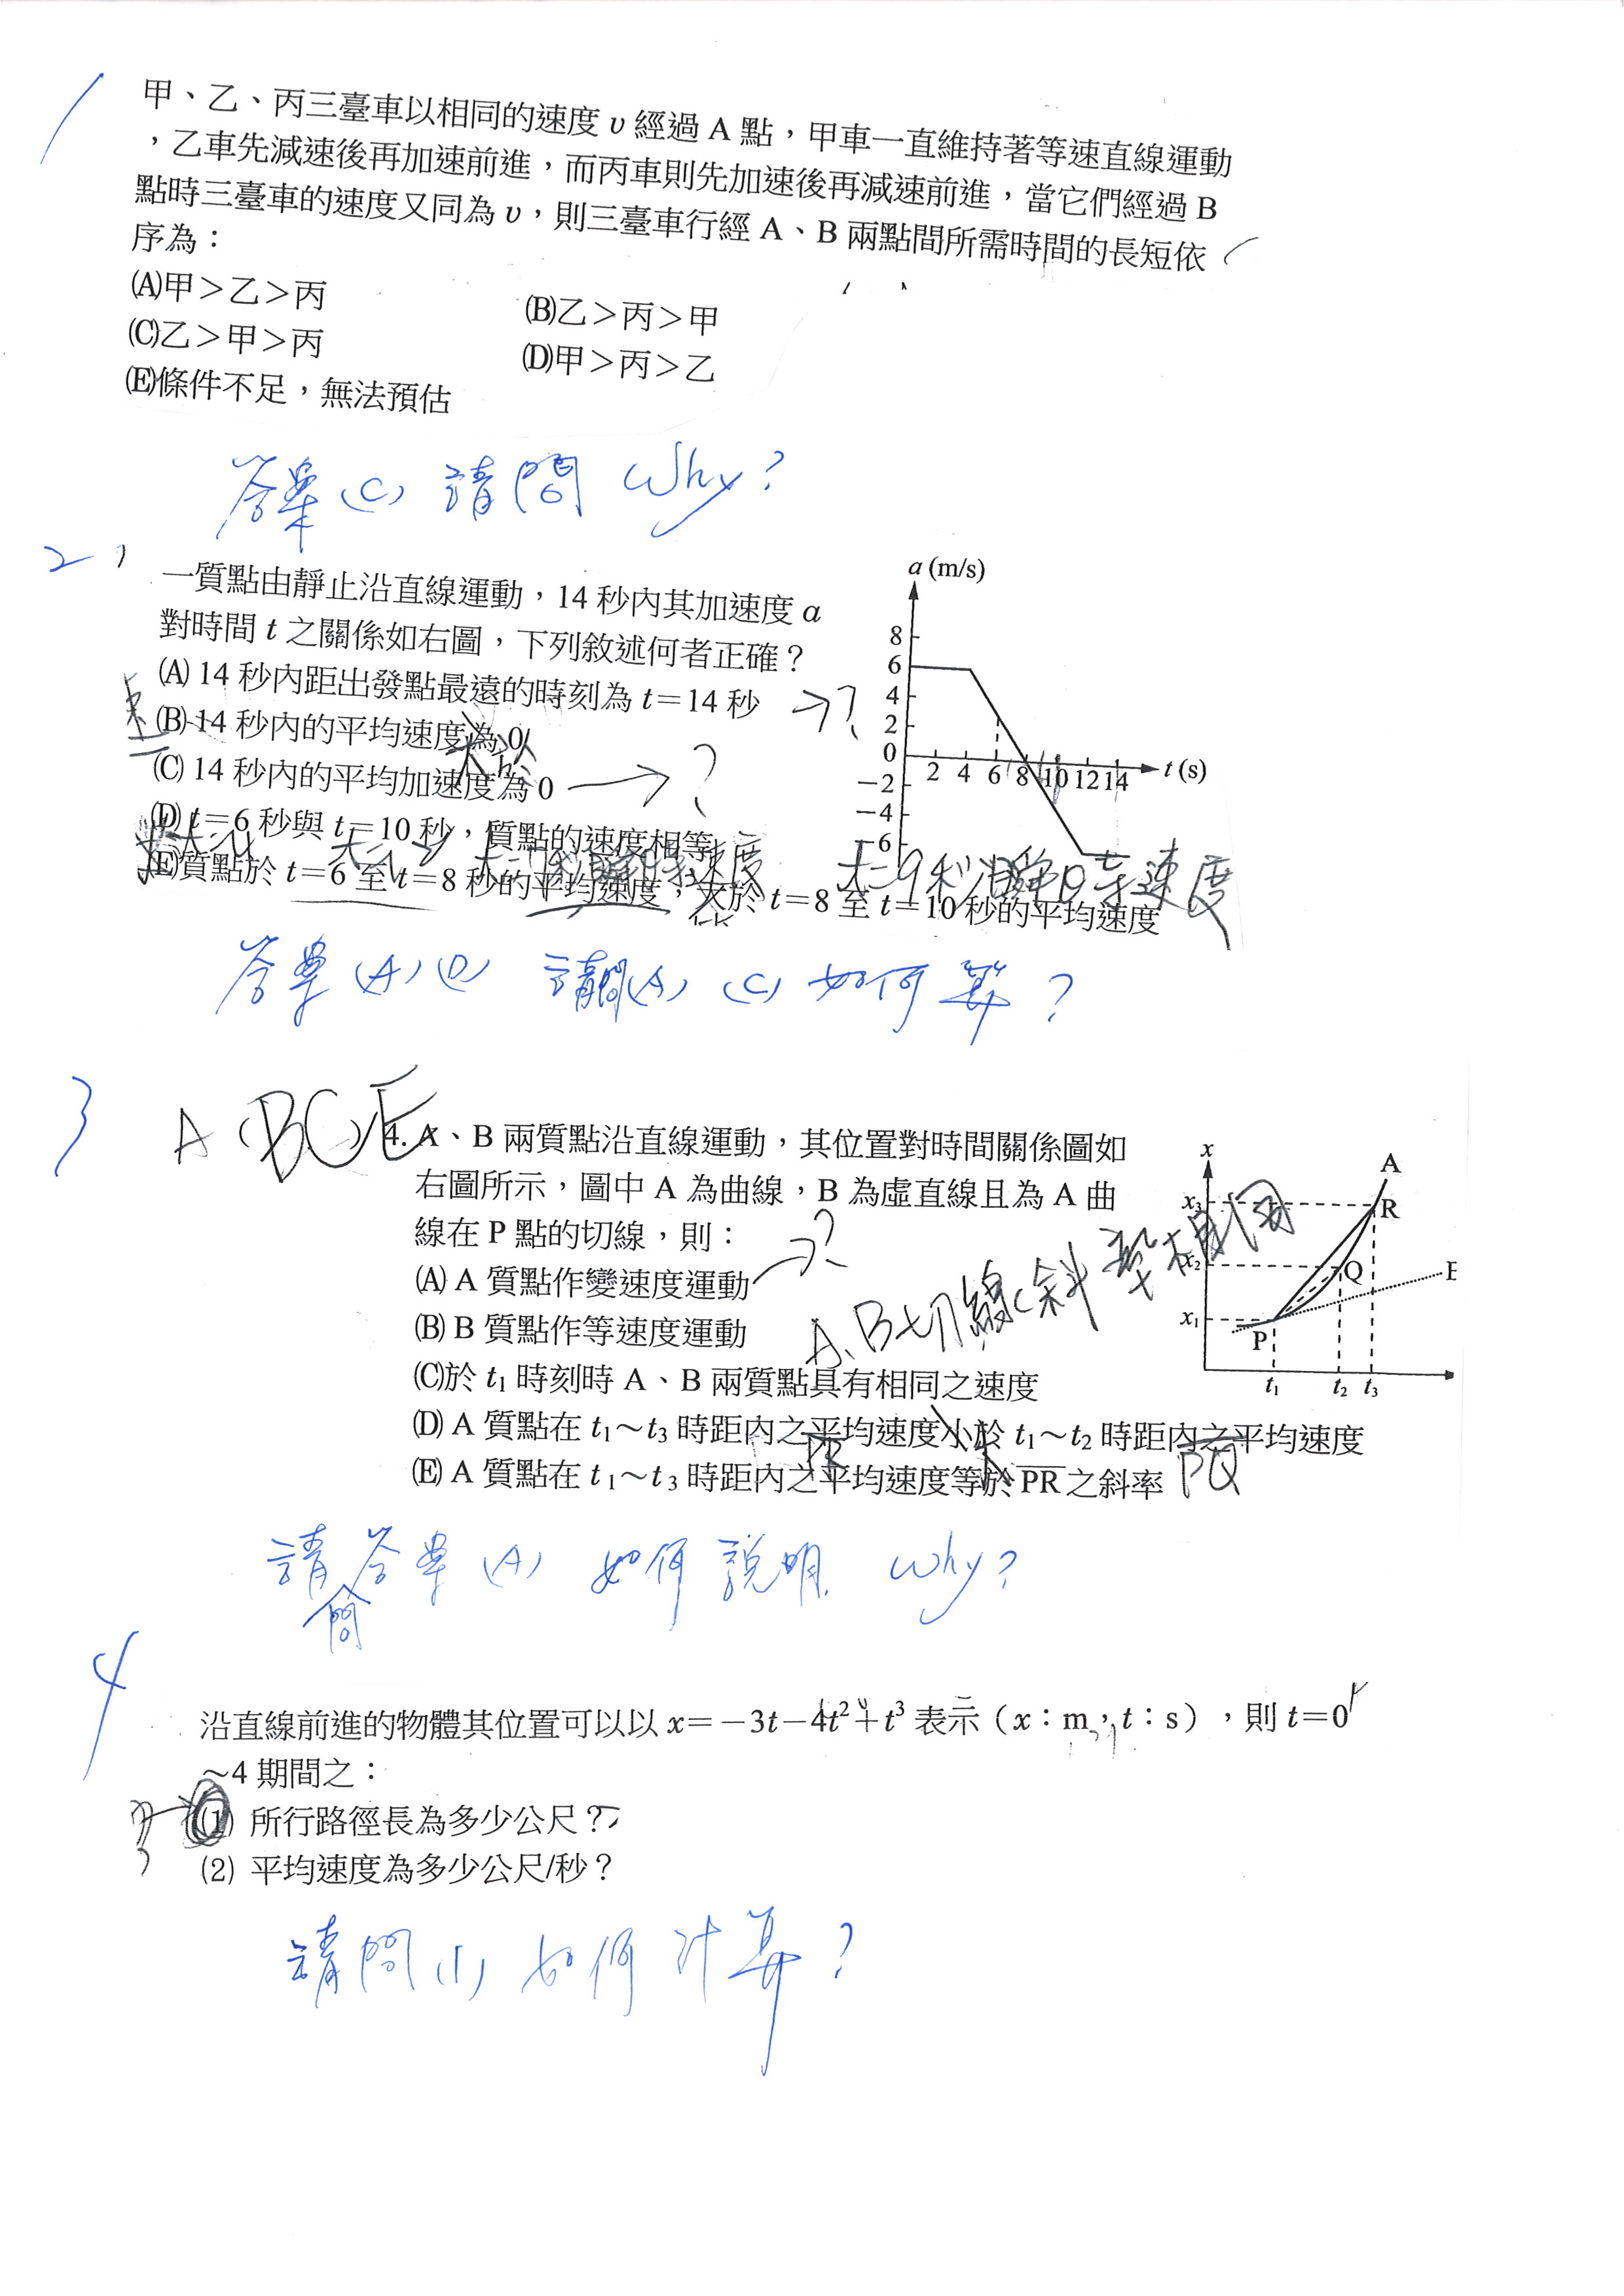 1
甲、乙、丙三臺車以相同的速度 υ 經過 A 點，甲車一直維持著等速直線運動
，乙車先減速後再加速前進，而丙車則先加速後再減速前進，當它們經過 B
點時三臺車的速度又同為 υ，則三臺車行經 A、B 兩點間所需時間的長短依
序為：
(A)甲＞乙＞丙 (B)乙＞丙＞甲
(C)乙＞甲＞丙 (D)甲＞丙＞乙
(E)條件不足，無法預估
答案(C) 請問 Why？
2
一質點由靜止沿直線運動，14 秒內其加速度 a
對時間 t 之關係如右圖，下列敘述何者正確？
(A) 14 秒內距出發點最遠的時刻為 t＝14 秒 →？
速
(B) 14 秒內的平均速度為 0
大於
(C) 14 秒內的平均加速度為 0 →？
(D) t＝6 秒與 t＝10 秒，質點的速度相等
(E)質點於 t＝6 至 t＝8 秒的平均速度，大於 t＝8 至 t＝10 秒的平均速度
t=7秒瞬時速度
t=9秒瞬時速度
a (m/s)
8
6
4
2
0
－2
－4
－6
2 4 6 8 10 12 14 t (s)
答案(A)(D) 請問(A)(C) 如何算？
3
A(BC)E
4. A、B 兩質點沿直線運動，其位置對時間關係圖如
右圖所示，圖中 A 為曲線，B 為虛直線且為 A 曲
線在 P 點的切線，則：
(A) A 質點作變速度運動 →？
(B) B 質點作等速度運動
A、B切線斜率相同
(C)於 t₁ 時刻時 A、B 兩質點具有相同之速度
(D) A 質點在 t₁～t₃ 時距內之平均速度小於 t₁～t₂ 時距內之平均速度
PR 大 PQ
(E) A 質點在 t₁～t₃ 時距內之平均速度等於 PR 之斜率
x
A
x₃ R
x₂ Q
x₁
P
t₁ t₂ t₃
請問答案(A) 如何說明 Why？
4
沿直線前進的物體其位置可以以 x＝－3t－4t²＋t³ 表示（x：m，t：s），則 t＝0
～4 期間之：
(1) 所行路徑長為多少公尺？
(2) 平均速度為多少公尺/秒？
請問(1) 如何計算？